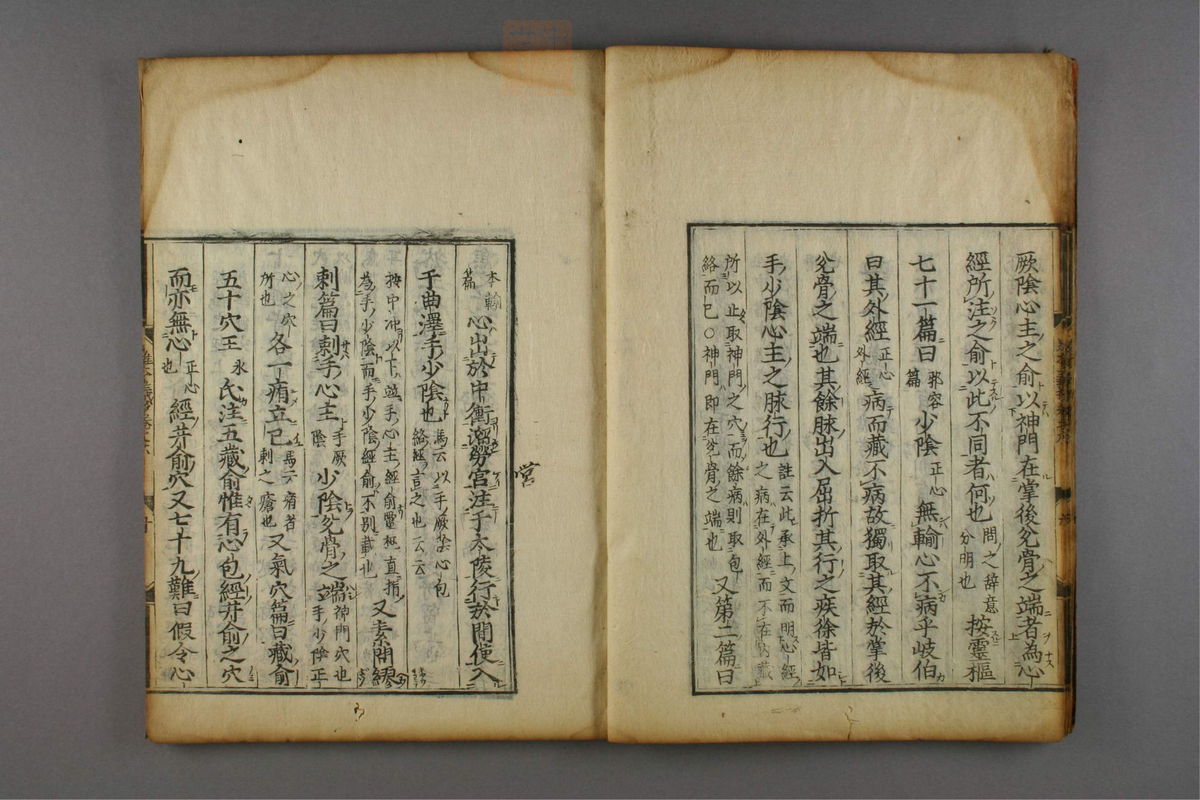 厥陰心主之俞以神門在掌後兊骨之端者為心
經所注之俞以此不同者何也 問之辞意分明也 按靈樞
七十一篇曰 邪容篇 少陰 正心 無輸心不病乎岐伯
曰其外經 正心外經 病而藏不病故獨取其經於掌後
兊骨之端也其餘脉出入屈折其行之疾徐皆如
手少陰心主之脉行也 註云此承上文而明心經之病在外經而不在
所以止取神門之穴而餘病則取包絡而已○神門即在兊骨之端也 又第二篇曰
本輸篇 心出於中衝溜勞宮注于太陵行於間使入
營
于曲澤手少陰也 馬云以手厥陰心包絡經言之也云云
按中冲以下並手心主經俞靈樞直指為手少陰而手少陰經俞不別載也 又素問繆
刺篇曰刺手心主 手厥陰 少陰兊骨之端 神門穴也手少陰正
心之穴所也 各一痏立已 馬云痏者刺之瘡也 又氣穴篇曰藏俞
五十穴王 永 氏注五藏俞惟有心包經井俞之穴
而亦無心 正心也 經井俞穴又七十九難曰假令心